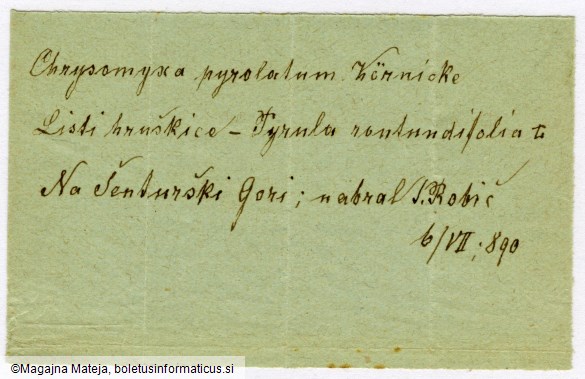 Chrysomyxa pyrolatum Körnicke
Listi hruškice – Pyrula rontundifolia L
Na Šenturški Gori; nabral S. Robič
6/VII; 890
©Magajna Mateja, boletusinformaticus.si